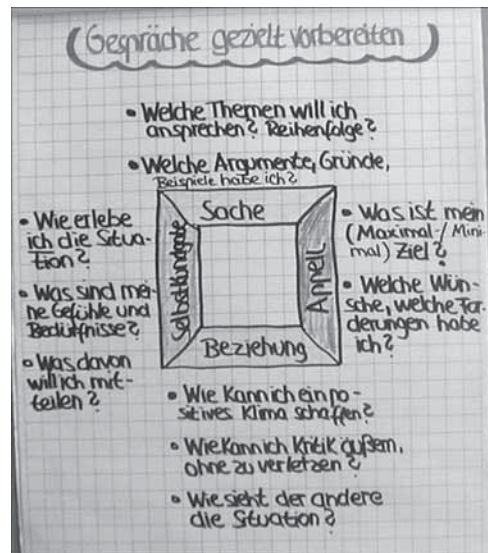 Gespräche gezielt vorbereiten
• Welche Themen will ich
ansprechen? Reihenfolge?
• Welche Argumente, Gründe,
Beispiele habe ich?
Sache
Selbstkundgabe
Appell
Beziehung
• Wie erlebe
ich die Situa-
tion?
• Was sind mei-
ne Gefühle und
Bedürfnisse?
• Was davon
will ich mit-
teilen?
• Was ist mein
(Maximal-/Mini
mal) Ziel?
• Welche Wün-
sche, welche For-
derungen habe
ich?
• Wie kann ich ein po-
sitives Klima schaffen?
• Wie kann ich Kritik äußern,
ohne zu verletzen?
• Wie sieht der andere
die Situation?